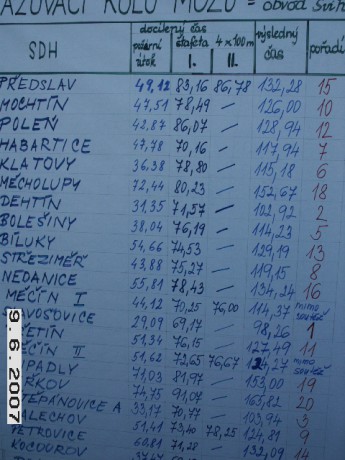 AZOVACÍ KOLO MUŽŮ = obvod Švih
SDH docílený čas výsledný čas pořadí
požární útok štafeta 4 x 100m
I. II.
PŘEDSLAV 49,12 83,16 86,78 132,28 15
MOCHTÍN 47,51 78,49 — 126,00 10
POLEŇ 42,87 86,07 — 128,94 12
HABARTICE 47,78 70,16 — 117,94 7
KLATOVY 36,38 78,80 — 115,18 6
MĚCHOLUPY 72,44 80,23 — 152,67 18
DEHTÍN 31,35 71,57 — 102,92 2
BOLEŠINY 38,04 76,19 — 114,23 5
BÍLUKY 54,66 74,53 — 129,19 13
STŘEZIMĚŘ 43,88 75,27 — 119,15 8
NEDANICE 55,81 78,43 — 134,24 16
MĚČÍN I 44,12 70,25 76,00 114,37 mimo soutěž
VOSOVICE 29,09 69,17 — 98,26 1
ETÍN 51,34 76,15 — 127,49 11
ČÍN II 51,62 72,65 76,67 124,27 mimo soutěž
PADLY 71,03 81,97 — 153,00 19
RKOV 74,75 91,07 — 165,82 20
ĚPÁNOVICE A 33,17 70,77 — 103,94 3
ALECHOV 51,41 73,40 78,25 124,81 9
ETROVICE 60,81 71,28 — 132,09 14
KOCOUROV
9.6.2007